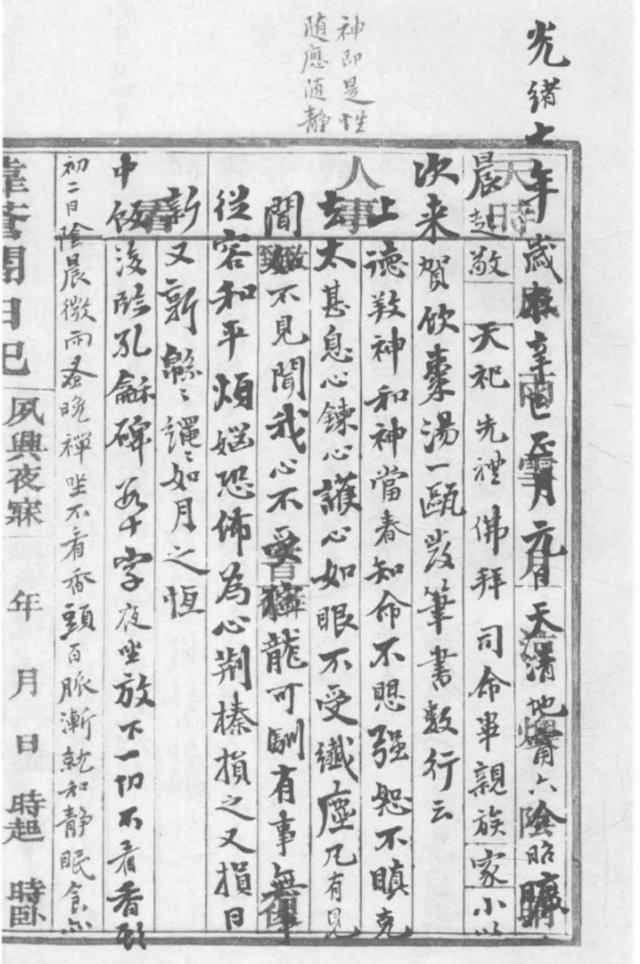 神即是性
随應随静
光緒七年歲在辛巳正月元日天清地甯六陰昭曠
晨起敬天祀先禮佛拜司命畢親族家小以
次来賀飲棗湯一甌發筆書数行云
上德敦神和神當春知命不惥强恕不瞋克
去太甚息心鍊心護心如眼不受纖塵凡有見
聞如不見聞我心不受獰龍可馴有事無事
從容和平煩惱恐怖為心荆榛損之又損日
新又新緜〻繩〻如月之恆
中飯後臨孔龢碑若干字夜坐放下一切不看香頭
初二日陰晨微雨蚤晚禪坐不看香頭百脈漸就和静眠食亦
日記
夙興夜寐 年 月 日 時起 時卧